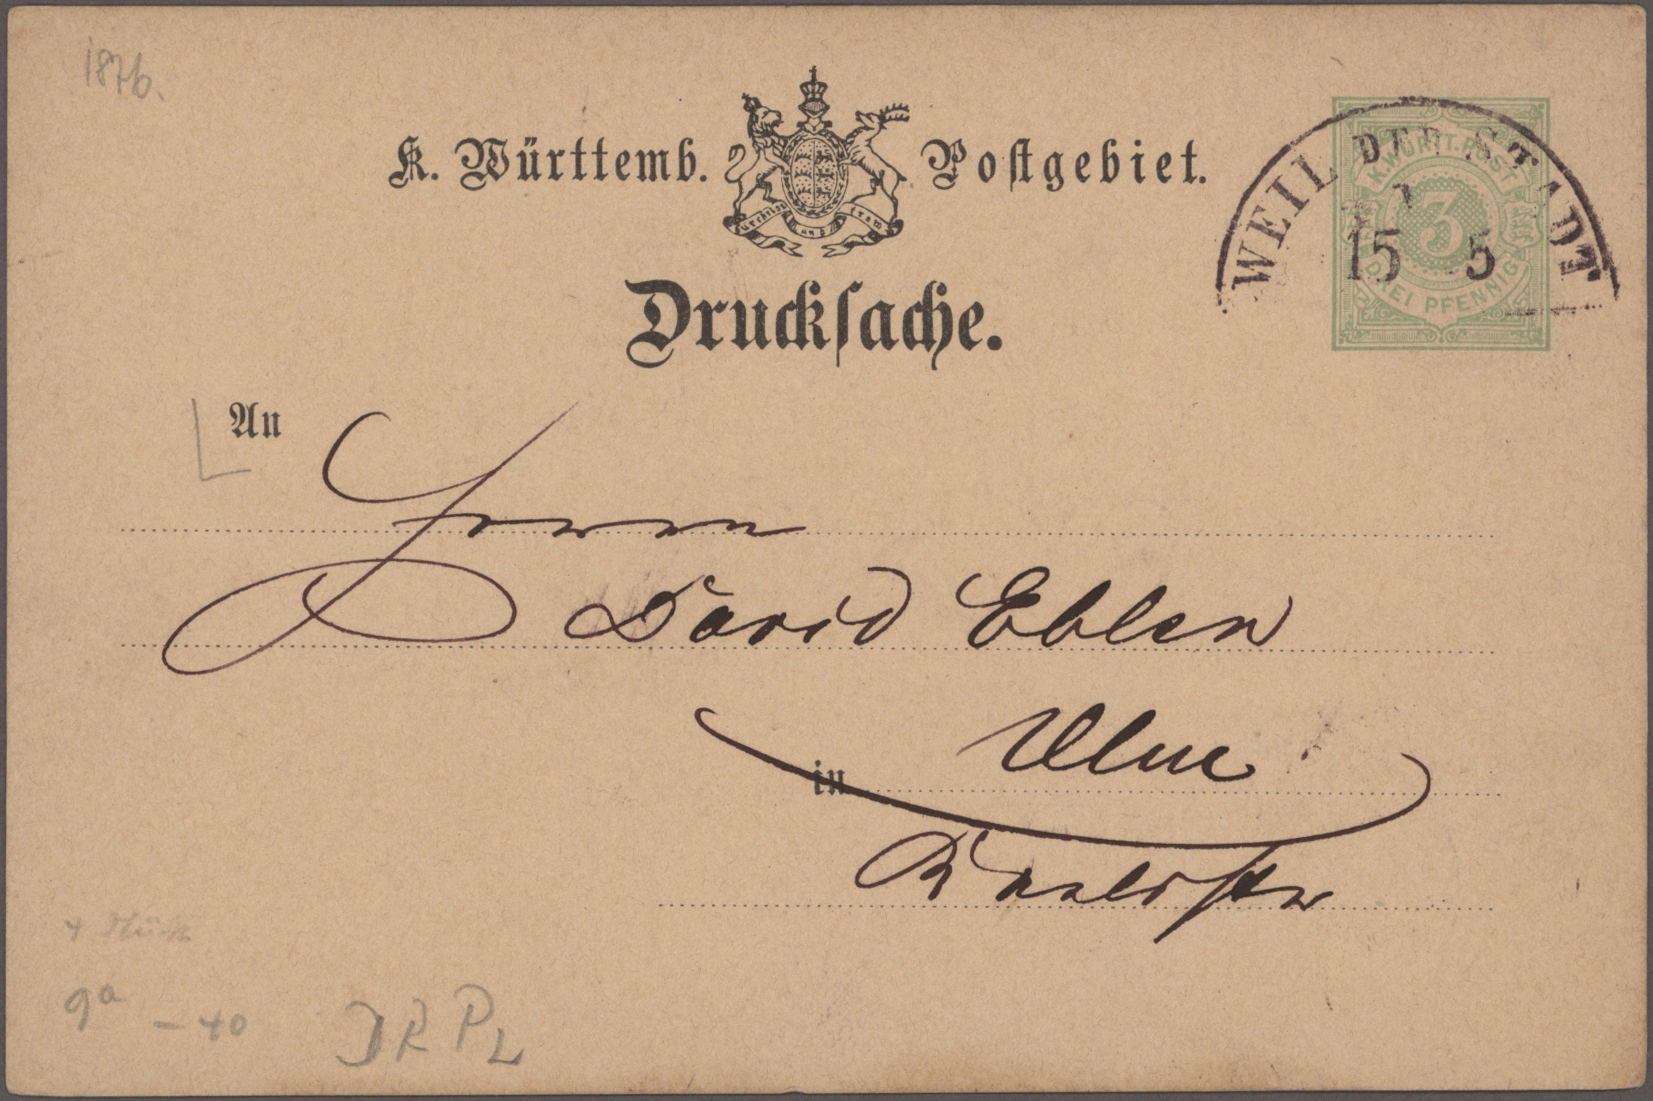 1876.
K. Württemb. Postgebiet.
furchtlos und trew
WEIL DER STADT
15 5
K. WÜRTT. POST
3
DREI PFENNIG
Drucksache.
An
Herrn
David Eblen
in Ulm
9a - 40
DRPL